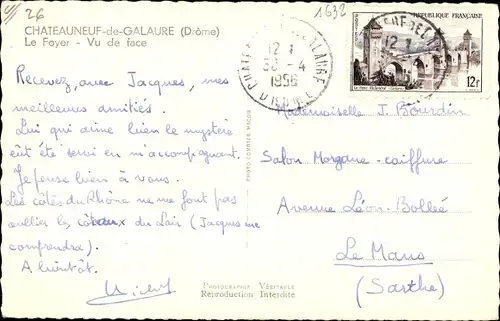 26
1632
CHATEAUNEUF-de-GALAURE (Drôme)
Le Foyer - Vu de face
Recevez, avec Jacques, mes
meilleures amitiés.
Lui qui aime bien le mystère
eût été servi en m'accompagnant.
Je pense bien à vous.
Les côtes du Rhône ne me font pas
oublier les coteaux du Loir (Jacques me
comprendra).
A bientôt.
12 1
30 - 4
1956
DROME
REPUBLIQUE FRANÇAISE
12f
Mademoiselle J. Bourdin
Salon Morgane - coiffure
Avenue Léon-Bollée
Le Mans
(Sarthe)
PHOTO COMBIER MACON
Photographie Véritable
Reproduction Interdite